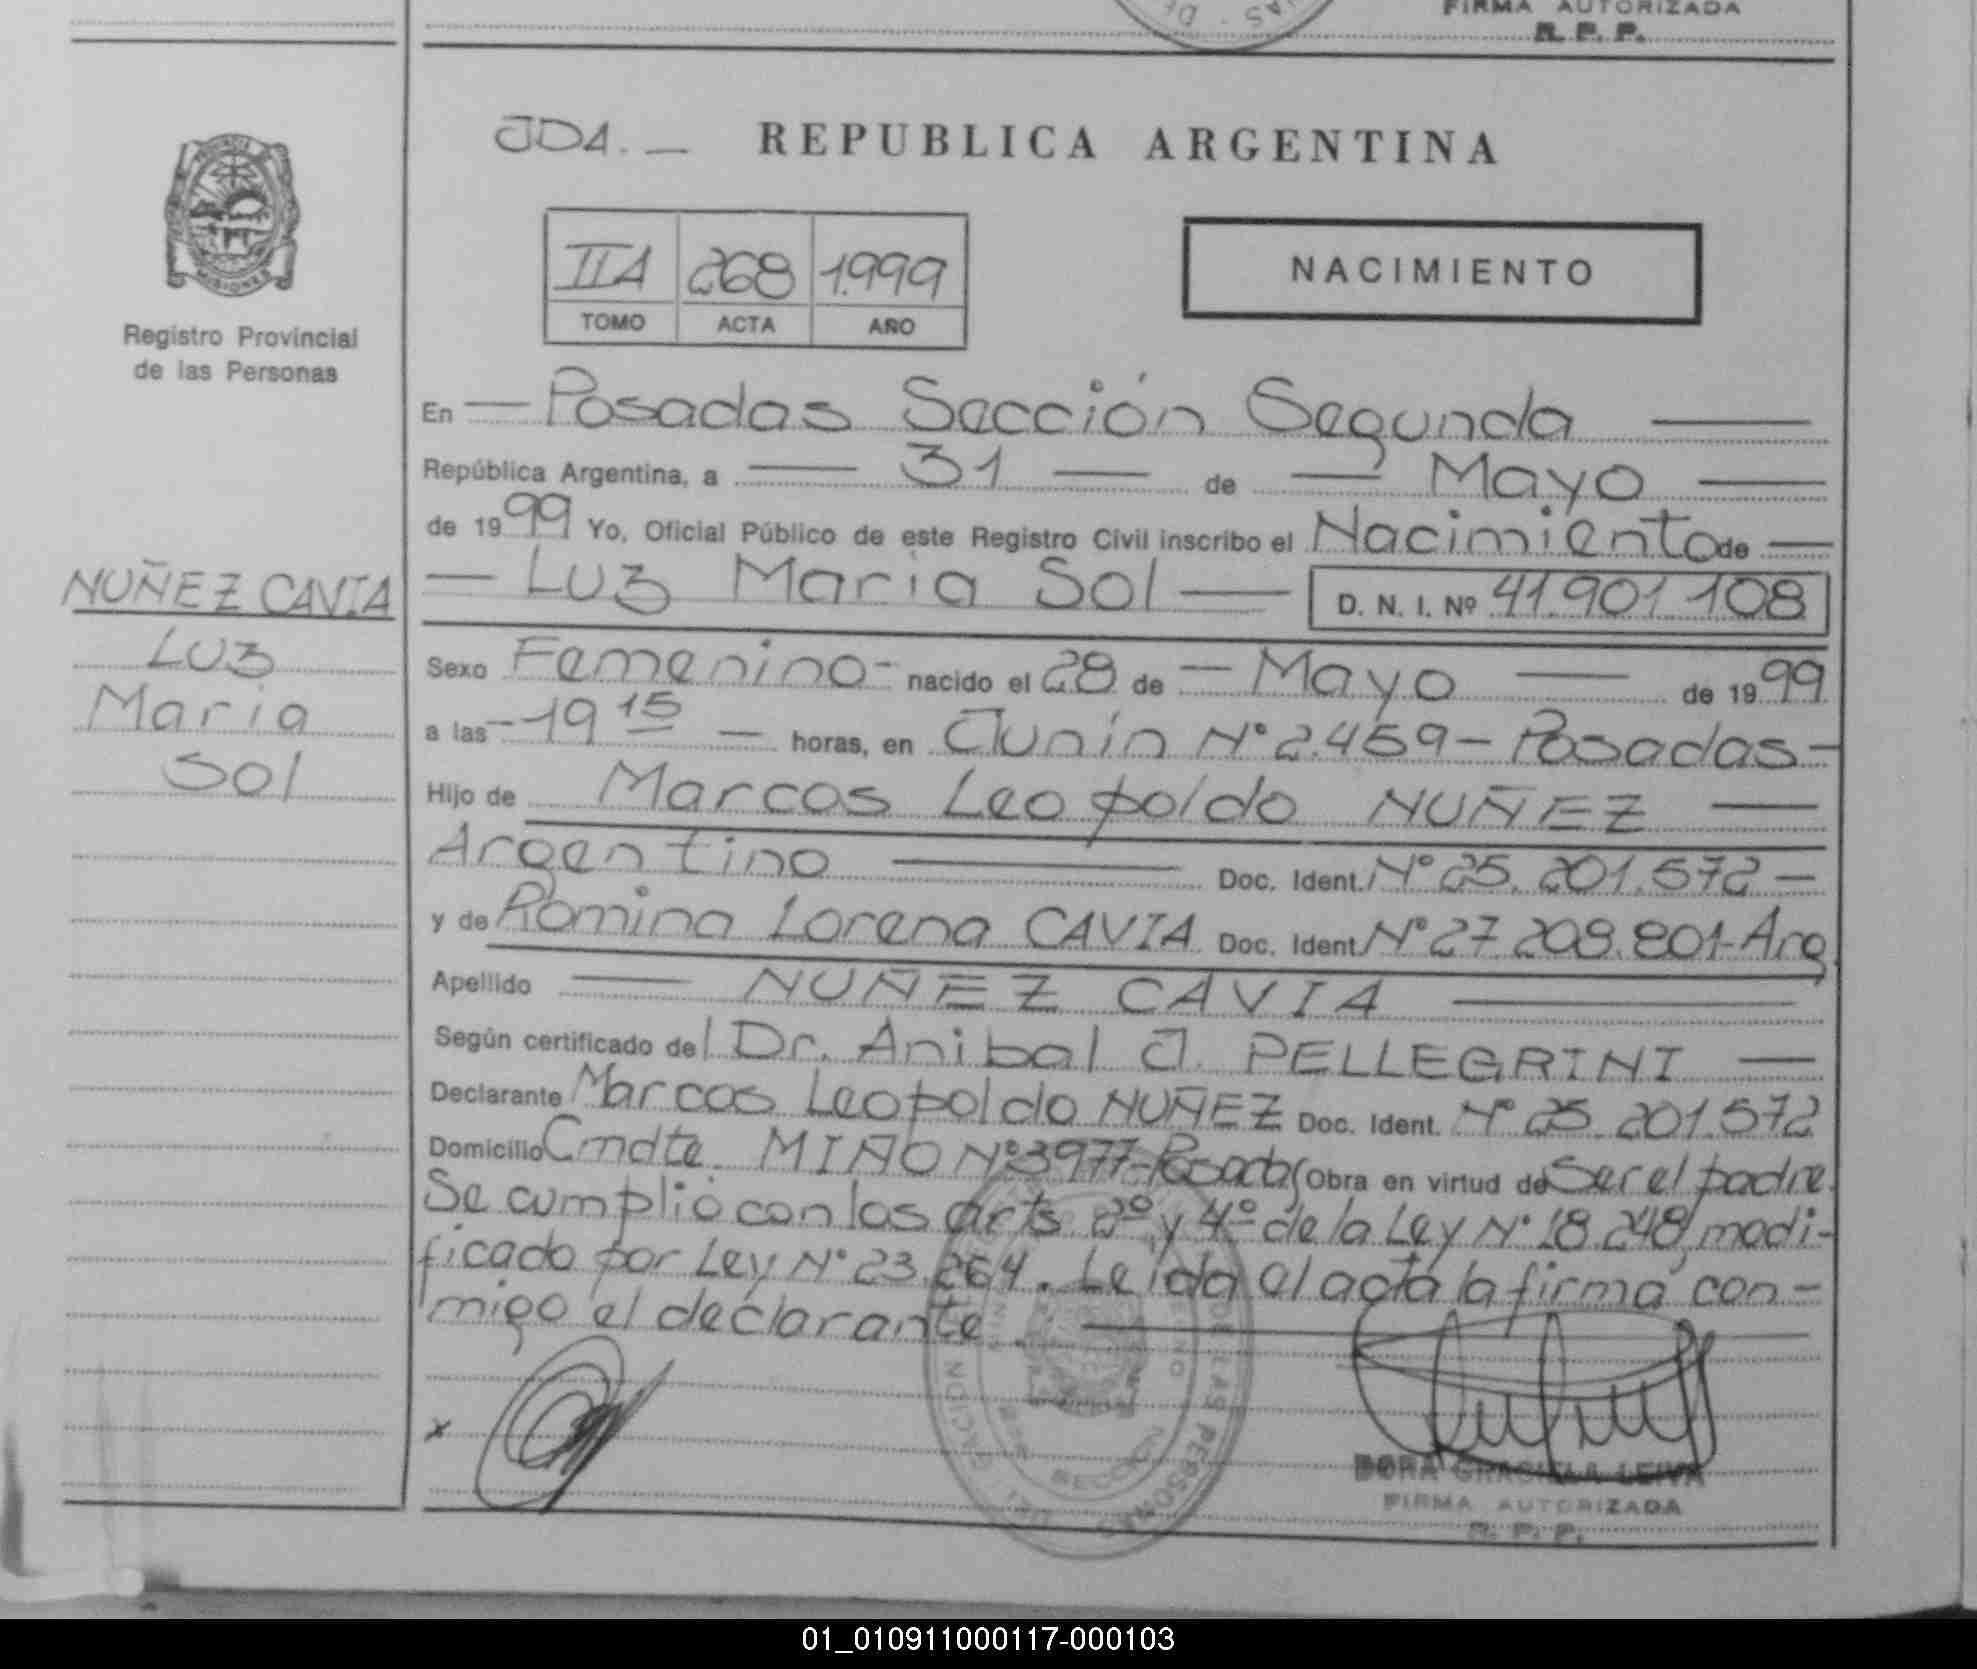 FIRMA AUTORIZADA
R. P. P.
JDA. —
REPUBLICA ARGENTINA
IIA 268 1.999
TOMO ACTA AÑO
NACIMIENTO
Registro Provincial
de las Personas
En — Posadas Sección Segunda —
República Argentina, a — 31 — de — Mayo —
de 1999 Yo, Oficial Público de este Registro Civil inscribo el Nacimiento de —
— Luz Maria Sol — D. N. I. Nº 41.901.108
NUÑEZ CAVIA
Luz
Maria
Sol
Sexo Femenino - nacido el 28 de — Mayo — de 1999
a las - 19 15 — horas, en Junín Nº 2.459 - Posadas -
Hijo de Marcos Leopoldo NUÑEZ —
Argentino — Doc. Ident. Nº 25.201.572 —
y de Romina Lorena CAVIA Doc. Ident. Nº 27.209.801 - Arg.
Apellido — NUÑEZ CAVIA —
Según certificado del Dr. Anibal J. PELLEGRINI —
Declarante Marcos Leopoldo NUÑEZ Doc. Ident. Nº 25.201.572
Domicilio Cmdte. MIÑO Nº 3977 - Posadas Obra en virtud de Ser el padre.
Se cumplió con los arts 2º y 4º de la Ley Nº 18.248, modi-
ficado por Ley Nº 23.264. Leída el acta la firma con-
migo el declarante. —
x
DORA GRACIELA LEIVA
FIRMA AUTORIZADA
R. P. P.
01_010911000117-000103